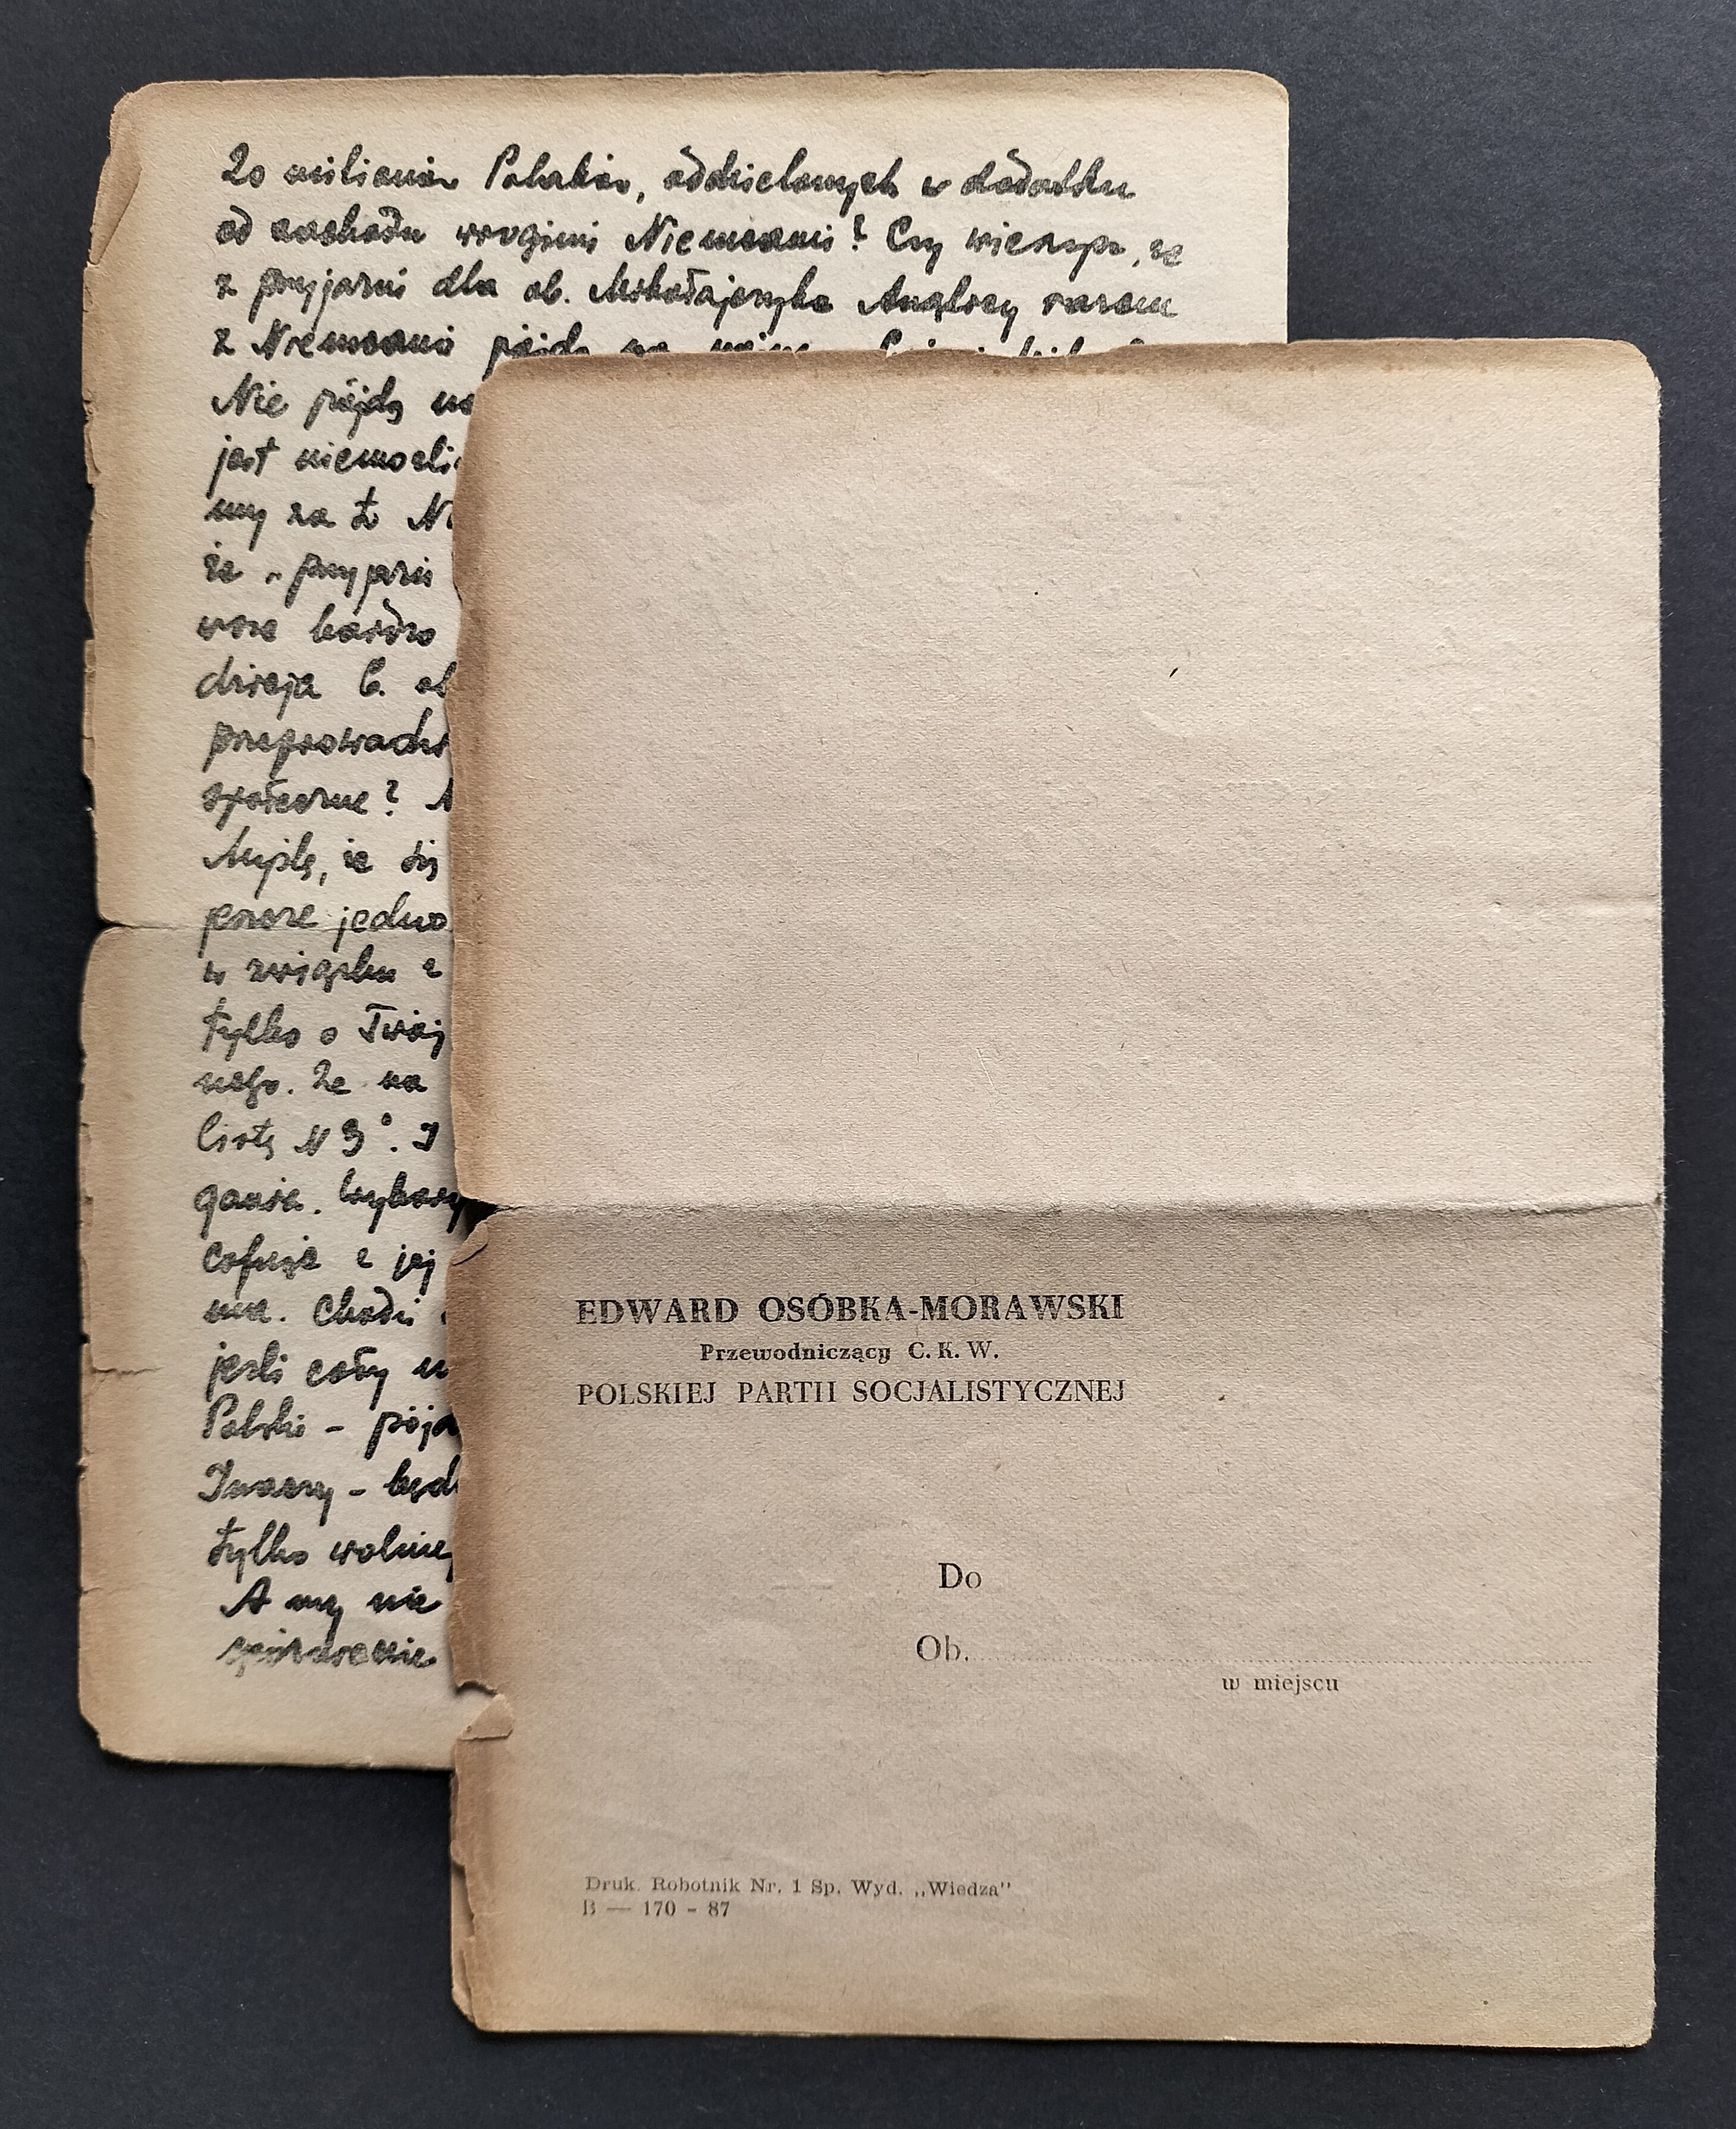 20 milionów Polaków, oddzielonych w dodatku
od zachodu wrogimi Niemcami? Czy wierzysz, że
z przyjaźni dla ob. Mikołajczyka Anglicy razem
z Niemcami pójdą na
Nie pójdą
jest niemożli
my za to
że „przyjaźń
bardzo
dzieje C. ob
przeprowadz
społeczne?
Myślę, że się
jeszcze jedno
w związku z
tylko o Twój
nego. Że na
listę N 3°. I
ganie. Wybory
cofnie z jej
ma. Chodzi
jeśli cały
Polski - pójd
Inaczej - będ
tylko wolniej
A my nie
EDWARD OSÓBKA-MORAWSKI
Przewodniczący C. K. W.
POLSKIEJ PARTII SOCJALISTYCZNEJ
Do
Ob.
w miejscu
Druk. Robotnik Nr. 1 Sp. Wyd. „Wiedza”
B — 170 - 87